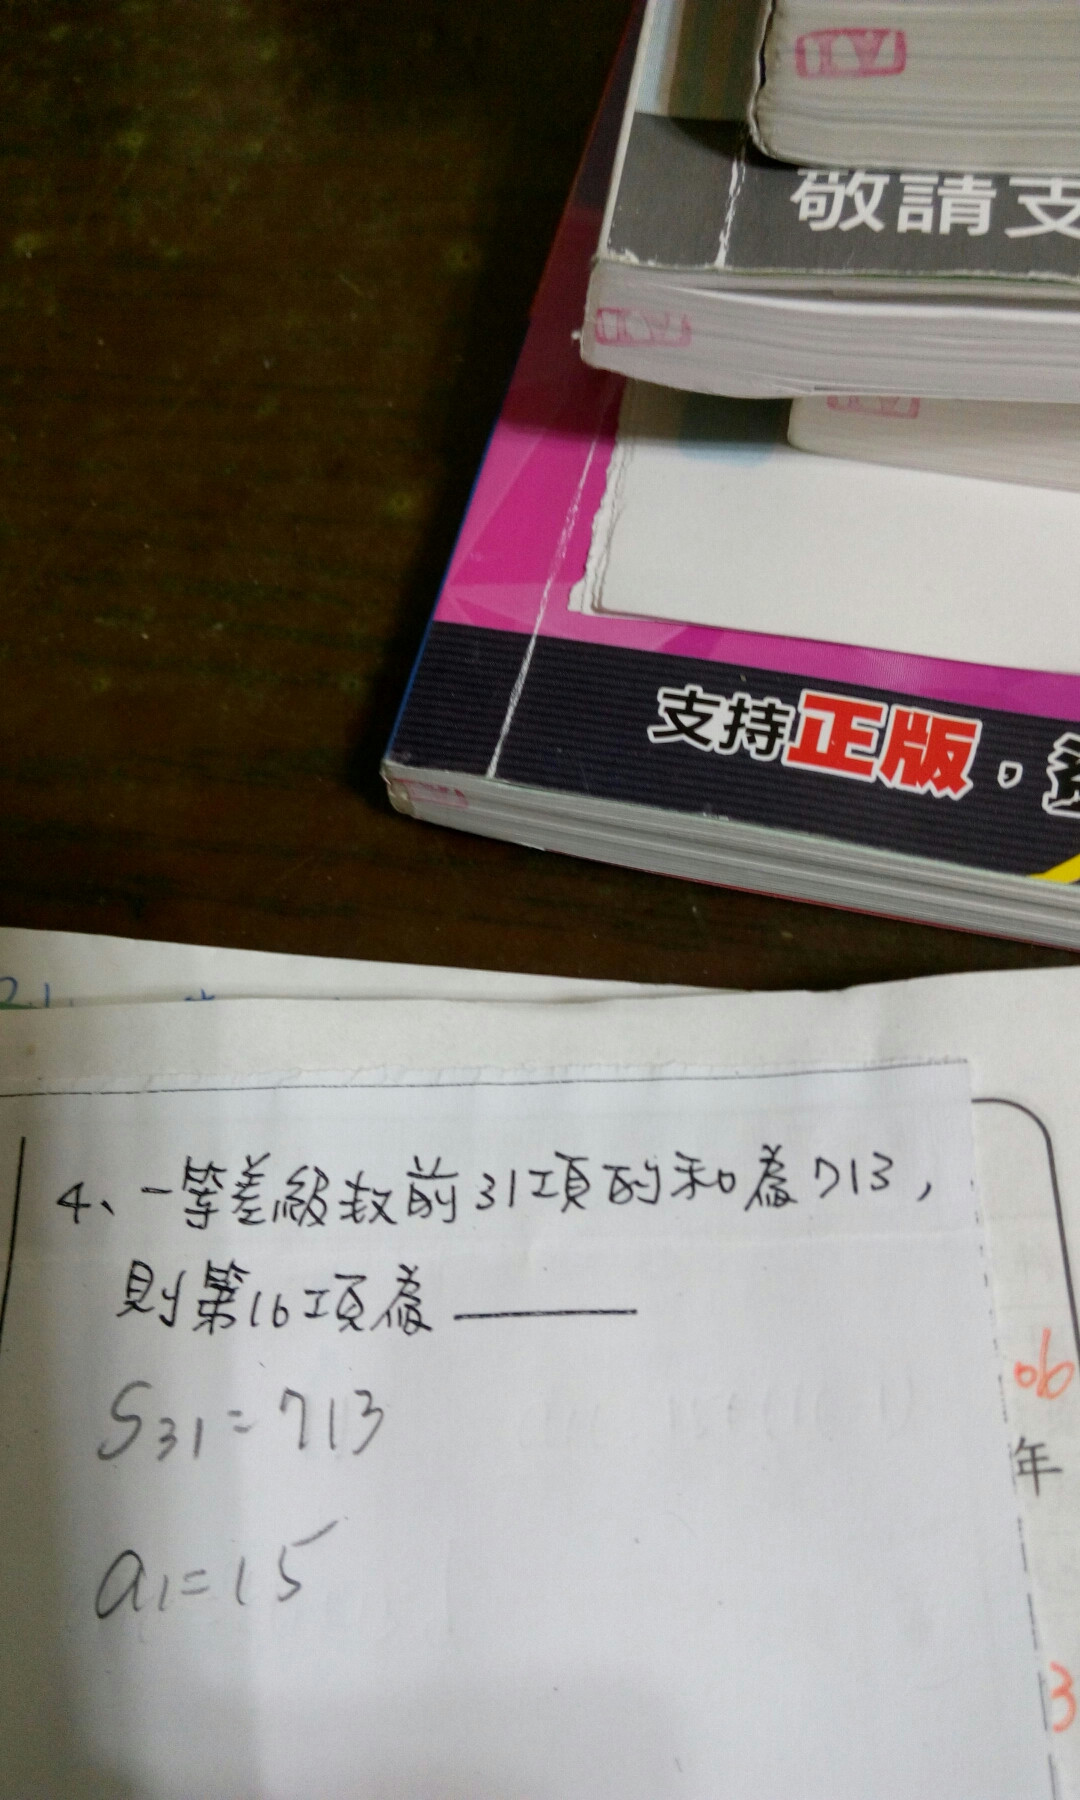 敬請支
支持正版，
4、一等差級数前31項的和為713，
則第16項為
S31=713
a1=15
年
3